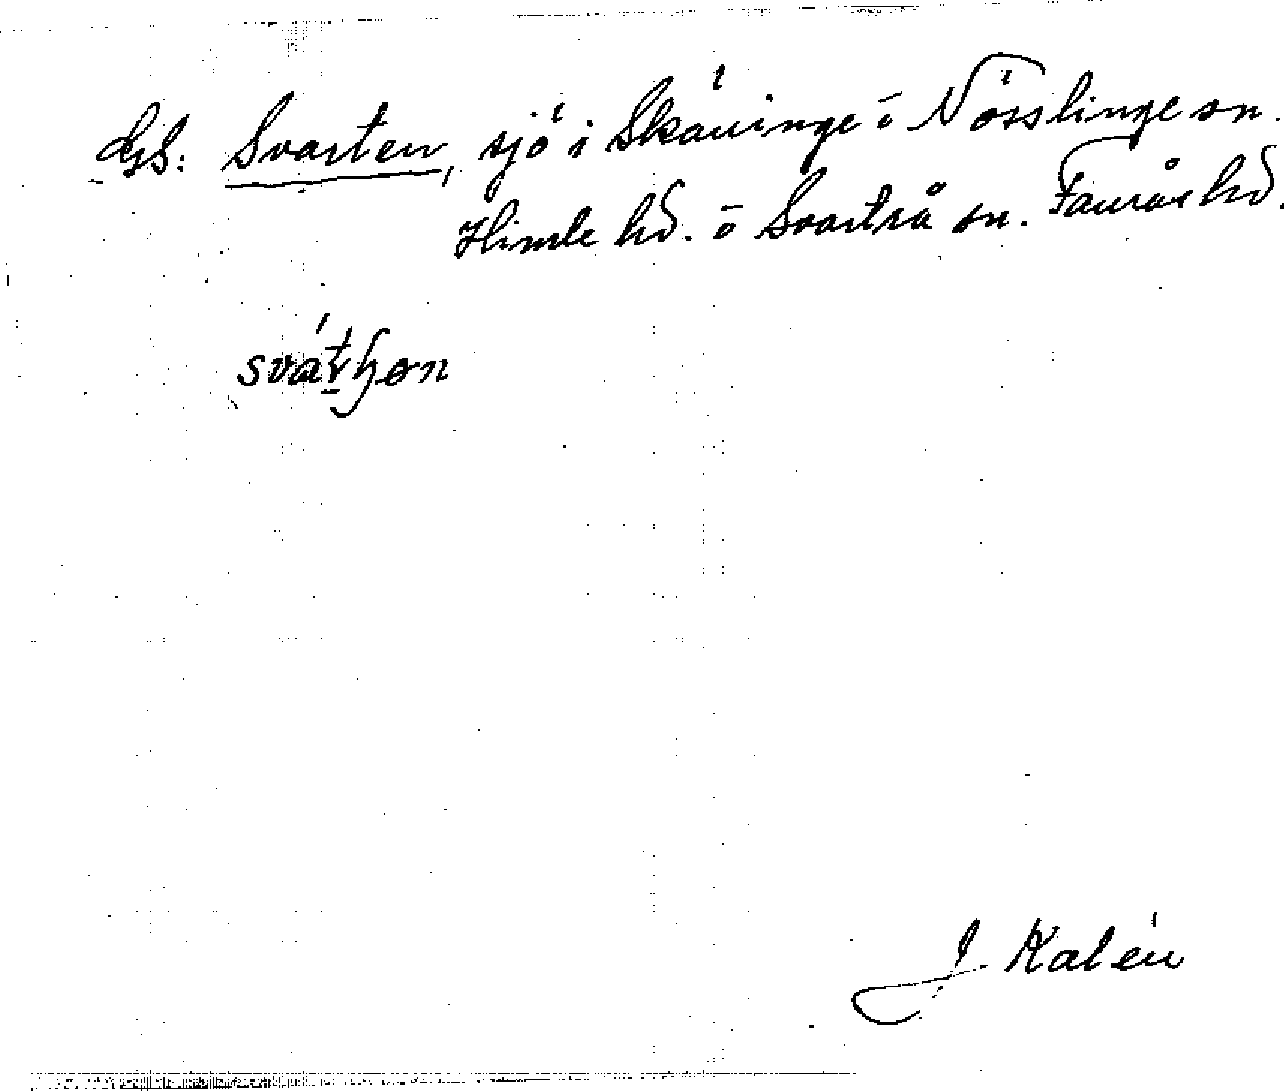 GS: Svarten, sjö i Skäninge o Nösslinge sn.
Himle hd. o Svartrå sn. Faurås hd.
J Kalén